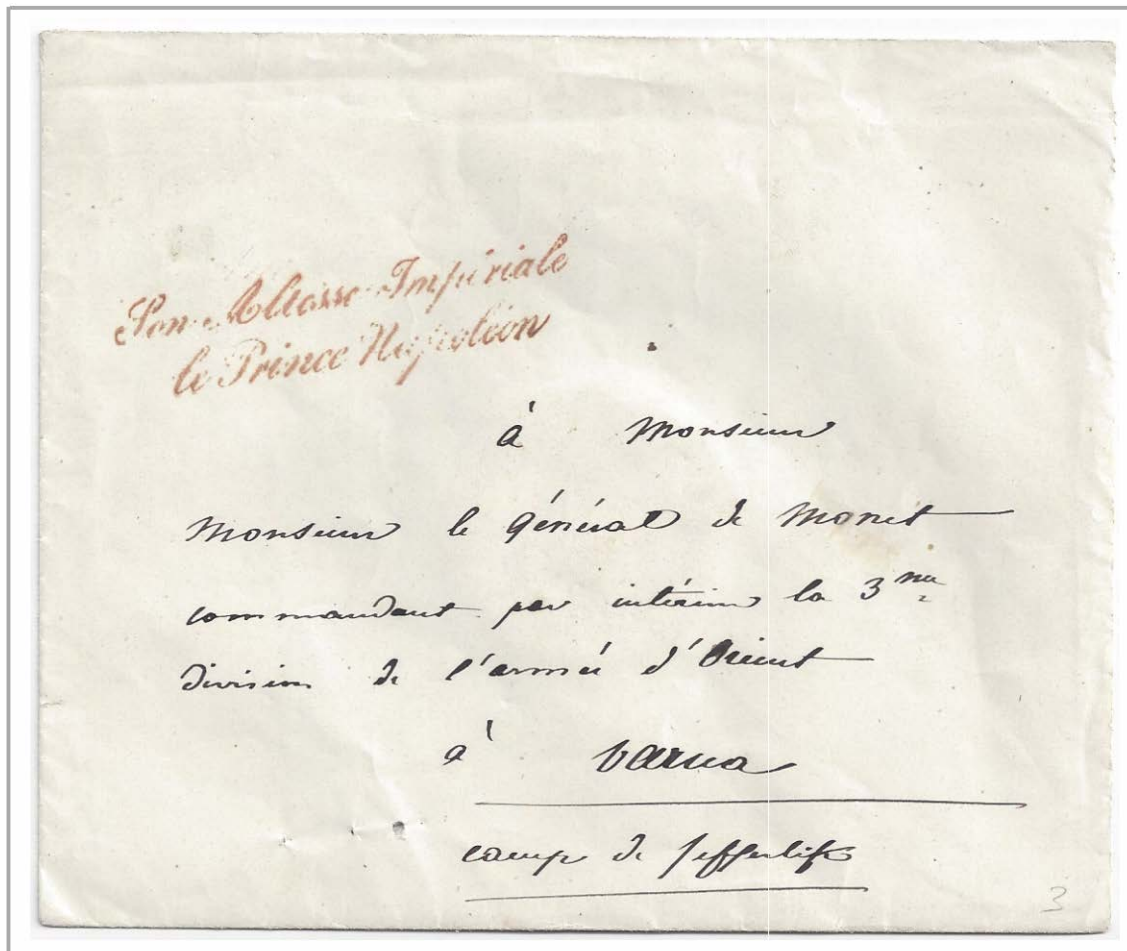 Son Altesse Impériale
le Prince Napoléon
à Monsieur
Monsieur le Général de Monet
commandant par intérim la 3me
division de l'armée d'Orient
à Varna
camp de
3